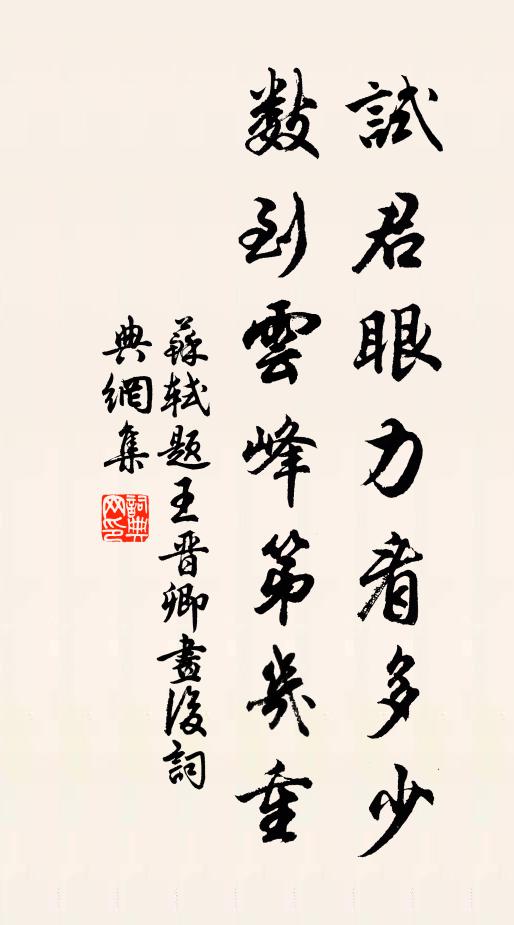 試君眼力看多少
數到雲峰第幾重
蘇軾題王晉卿畫後詞
典網集
詞典網印